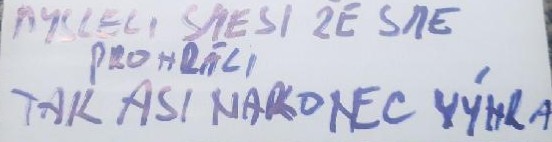 MYSLELI SME SI ŽE SME
PROHRÁLI
TAK ASI NAKONEC VÝHRA